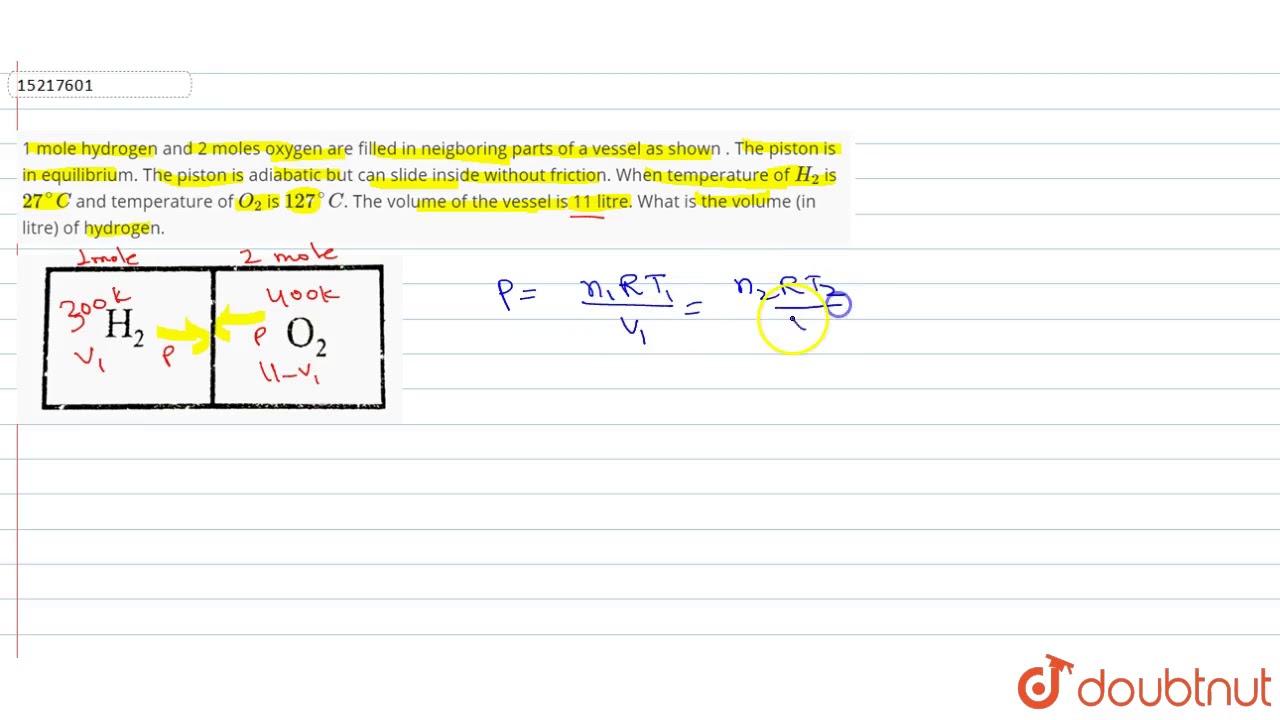 15217601
1 mole hydrogen and 2 moles oxygen are filled in neigboring parts of a vessel as shown . The piston is
in equilibrium. The piston is adiabatic but can slide inside without friction. When temperature of H₂ is
27°C and temperature of O₂ is 127°C. The volume of the vessel is 11 litre. What is the volume (in
litre) of hydrogen.
1mole 2 mole
300k H₂ V₁ P
400k P O₂ 11-V₁
P = n₁RT₁/V₁ = n₂RT₂
doubtnut